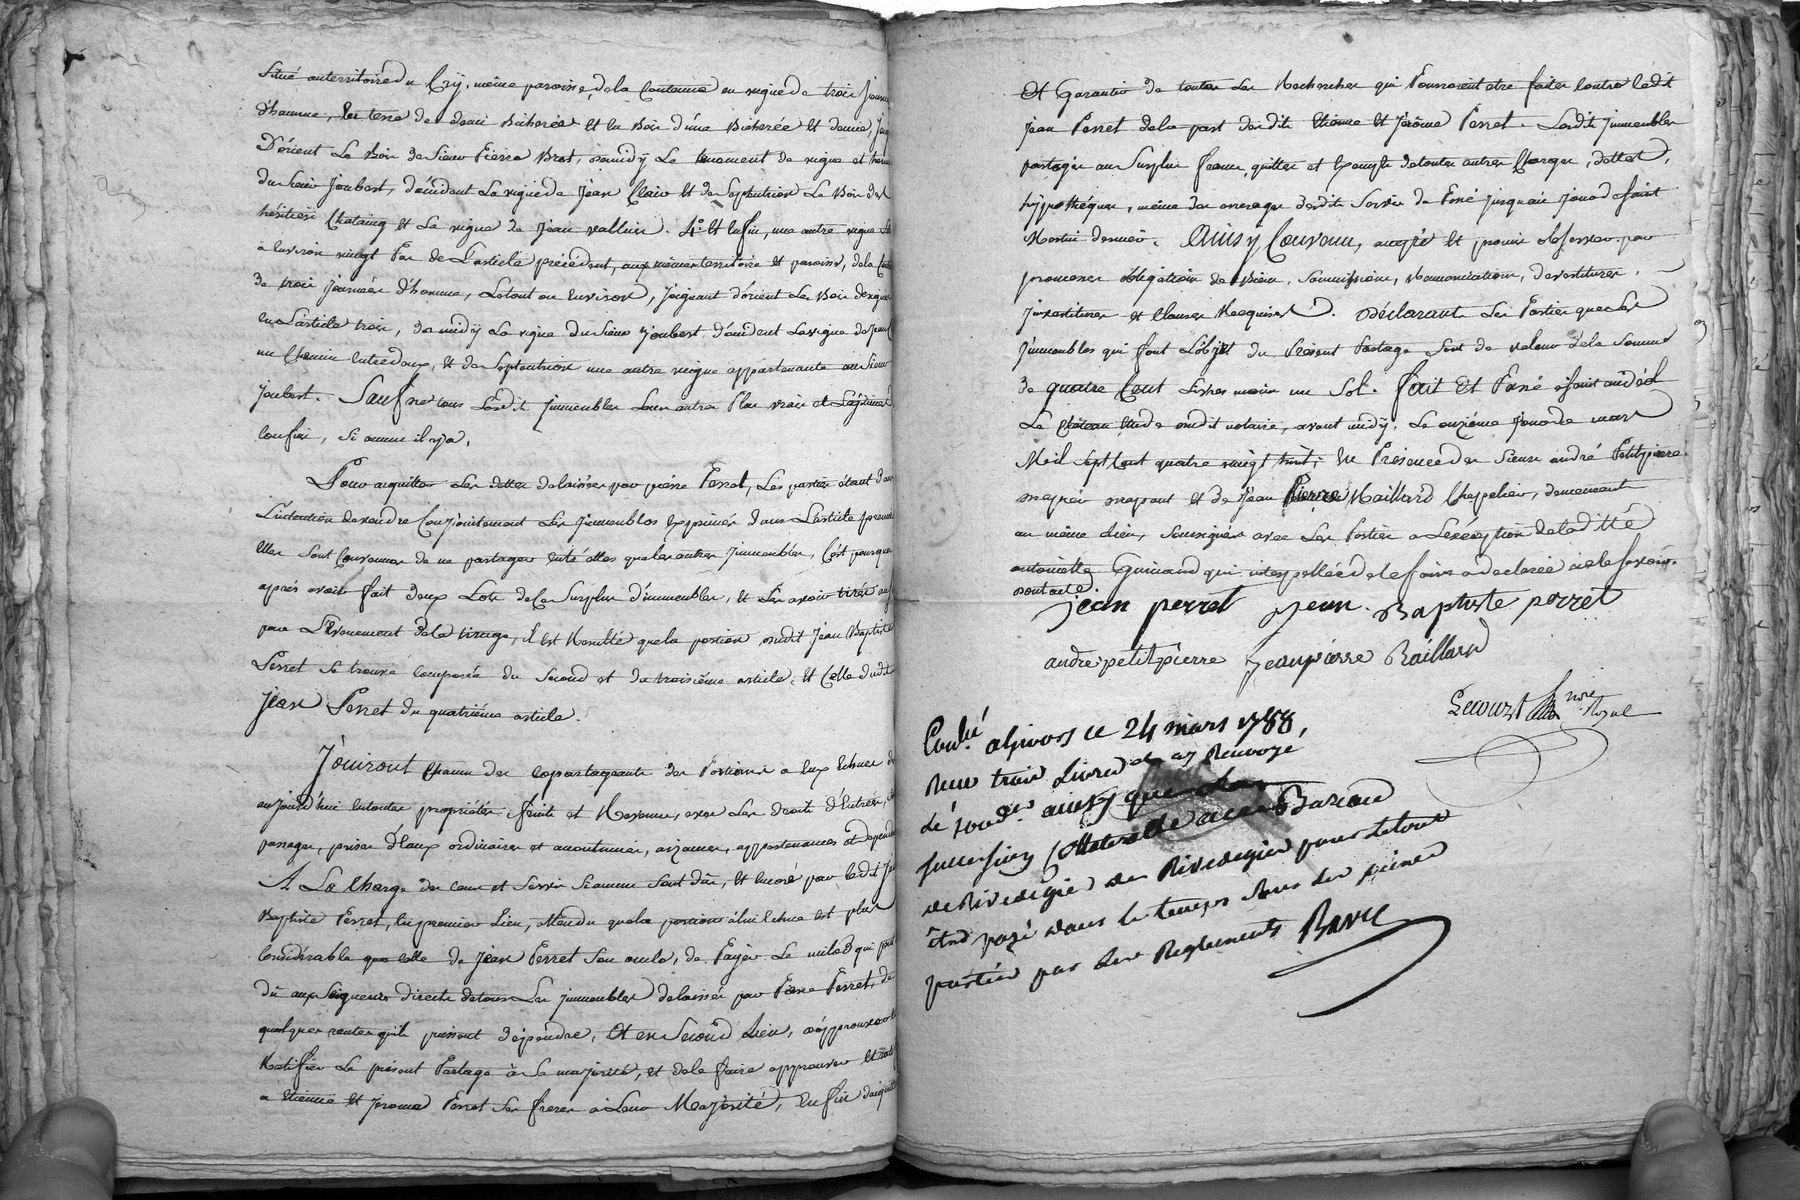 Situé au territoire du Cry, même paroisse, de la Contenüe en vigne de trois journées
d'homme, En terre de demi Bicherée et en Bois d'une Bicherée et demie, joignant
D'orient Le Bois de Sieur Pierre Brot, de midÿ Le tenement de vigne et terre
du Sieur Joubert, d'occident La vigne de jean Clair et de Septentrion Le Bois des
héritiers Chataing et La vigne de jean vallier. 4.° Et Enfin, une autre vigne
a Environ vingt Pas de L'article précédent, aux mêmes territoire et paroisse, de la
de trois journées d'homme, Le tout ou Environ, joignant d'orient Le Bois designé
En L'article trois, de midÿ La vigne du Sieur Joubert d'occident La vigne de jean
un Chemin entre deux, et de Septentrion une autre vigne appartenante au Sieur
Joubert. Sauf de tous Lesdit jmmeubles Leurs autres Plus vrais et Légitimes
confins, si aucuns il y a.
Pour acquitter Les dettes delaissées par pierre Perret, Les parties étant dans
L'intention de vendre Conjointement Les jmmeubles Exprimés dans L'article premier
Elles sont Convenues de ne partager entr'elles que les autres jmmeubles, C'est pourquoi
après avoir fait deux Lots de ce Surplus d'immeubles, et Les avoir tirés au
par L'évenement de la tirage, il est Resulté que la portion dudit Jean Baptiste
Perret se trouve composée du Second et du troisième article, et Celle dudit
jean Perret du quatrième article.
Jouiront Chacun des copartageants des Portions a Eux Echues dès
aujourd'hui en toutes propriétés, fruits et Revenus, avec Les droits d'Entrées,
passages, prises d'Eaux ordinaires et accoutumées, aizances, appartenances et dependances
A La Charge des cens et Servis Si aucuns Sont dûs, et encore par Ledit Jean
Baptiste Perret, En premier Lieu, attendu que la portion a lui Echue est plus
Considérable que celle de jean Perret Son oncle, de Payer Le milod qui peut
dû aux Seigneurs directs de tous Les jmmeubles delaissés par Pierre Perret, de
quelques rentes qu'ils puissent dépendre, Et en Second Lieu, d'approuver et
Ratifier Le présent Partage à sa majorité, et de le faire approuver et
a Etienne et Jerome Perret Ses freres à Leur Majorité, Enfin d'acquitter
Et Garantir de toutes Les Recherches qui Pourroient etre faites contre Ledit
jean Perret de la part desdits Etienne et Jérôme Perret. Lesdits jmmeubles
partagés au Surplus francs, quittes et Exempts de toutes autres Charges, dettes,
hypothèques, même des arrerages desdits Servis du Passé jusqu'au jour de saint
Martin dernier. Ainsy Convenu, accepté et promis observer par
promesses obligation de Biens, Soumissions, Renonciations, devestitures,
jnvestitures et Clauses Requises. Déclarants Les Parties que Les
jmmeubles qui font L'objet du Présent Partage Sont de valeur de la Somme
de quatre Cent Livres moins un Sol. Fait et Passé à Saint andéol
Le Château Etude dudit notaire, avant midy. Le onzième jour de mars
Mil Sept Cent quatre vingt huit; En Présence de Sieur andré Petitpierre
maçon et de Jean Pierre Raillard Chapelier, demeurant
au même Lieu, Soussignés avec Les Parties a L'exception de laditte
antoinette Guinand qui interpellée de le faire a declarée ne le scavoir.
jean perret jean Baptiste perret
andré petitpierre jeanpierre Raillard
Lecourt nre Royal
Conlé. a Givors ce 24 mars 1788,
Reçu trois Livres
de 10 Sd. ainsy que
succession Collateralle au Bureau
de Rivedegier
être payé dans le temps sous les peines
portées par Les Reglements